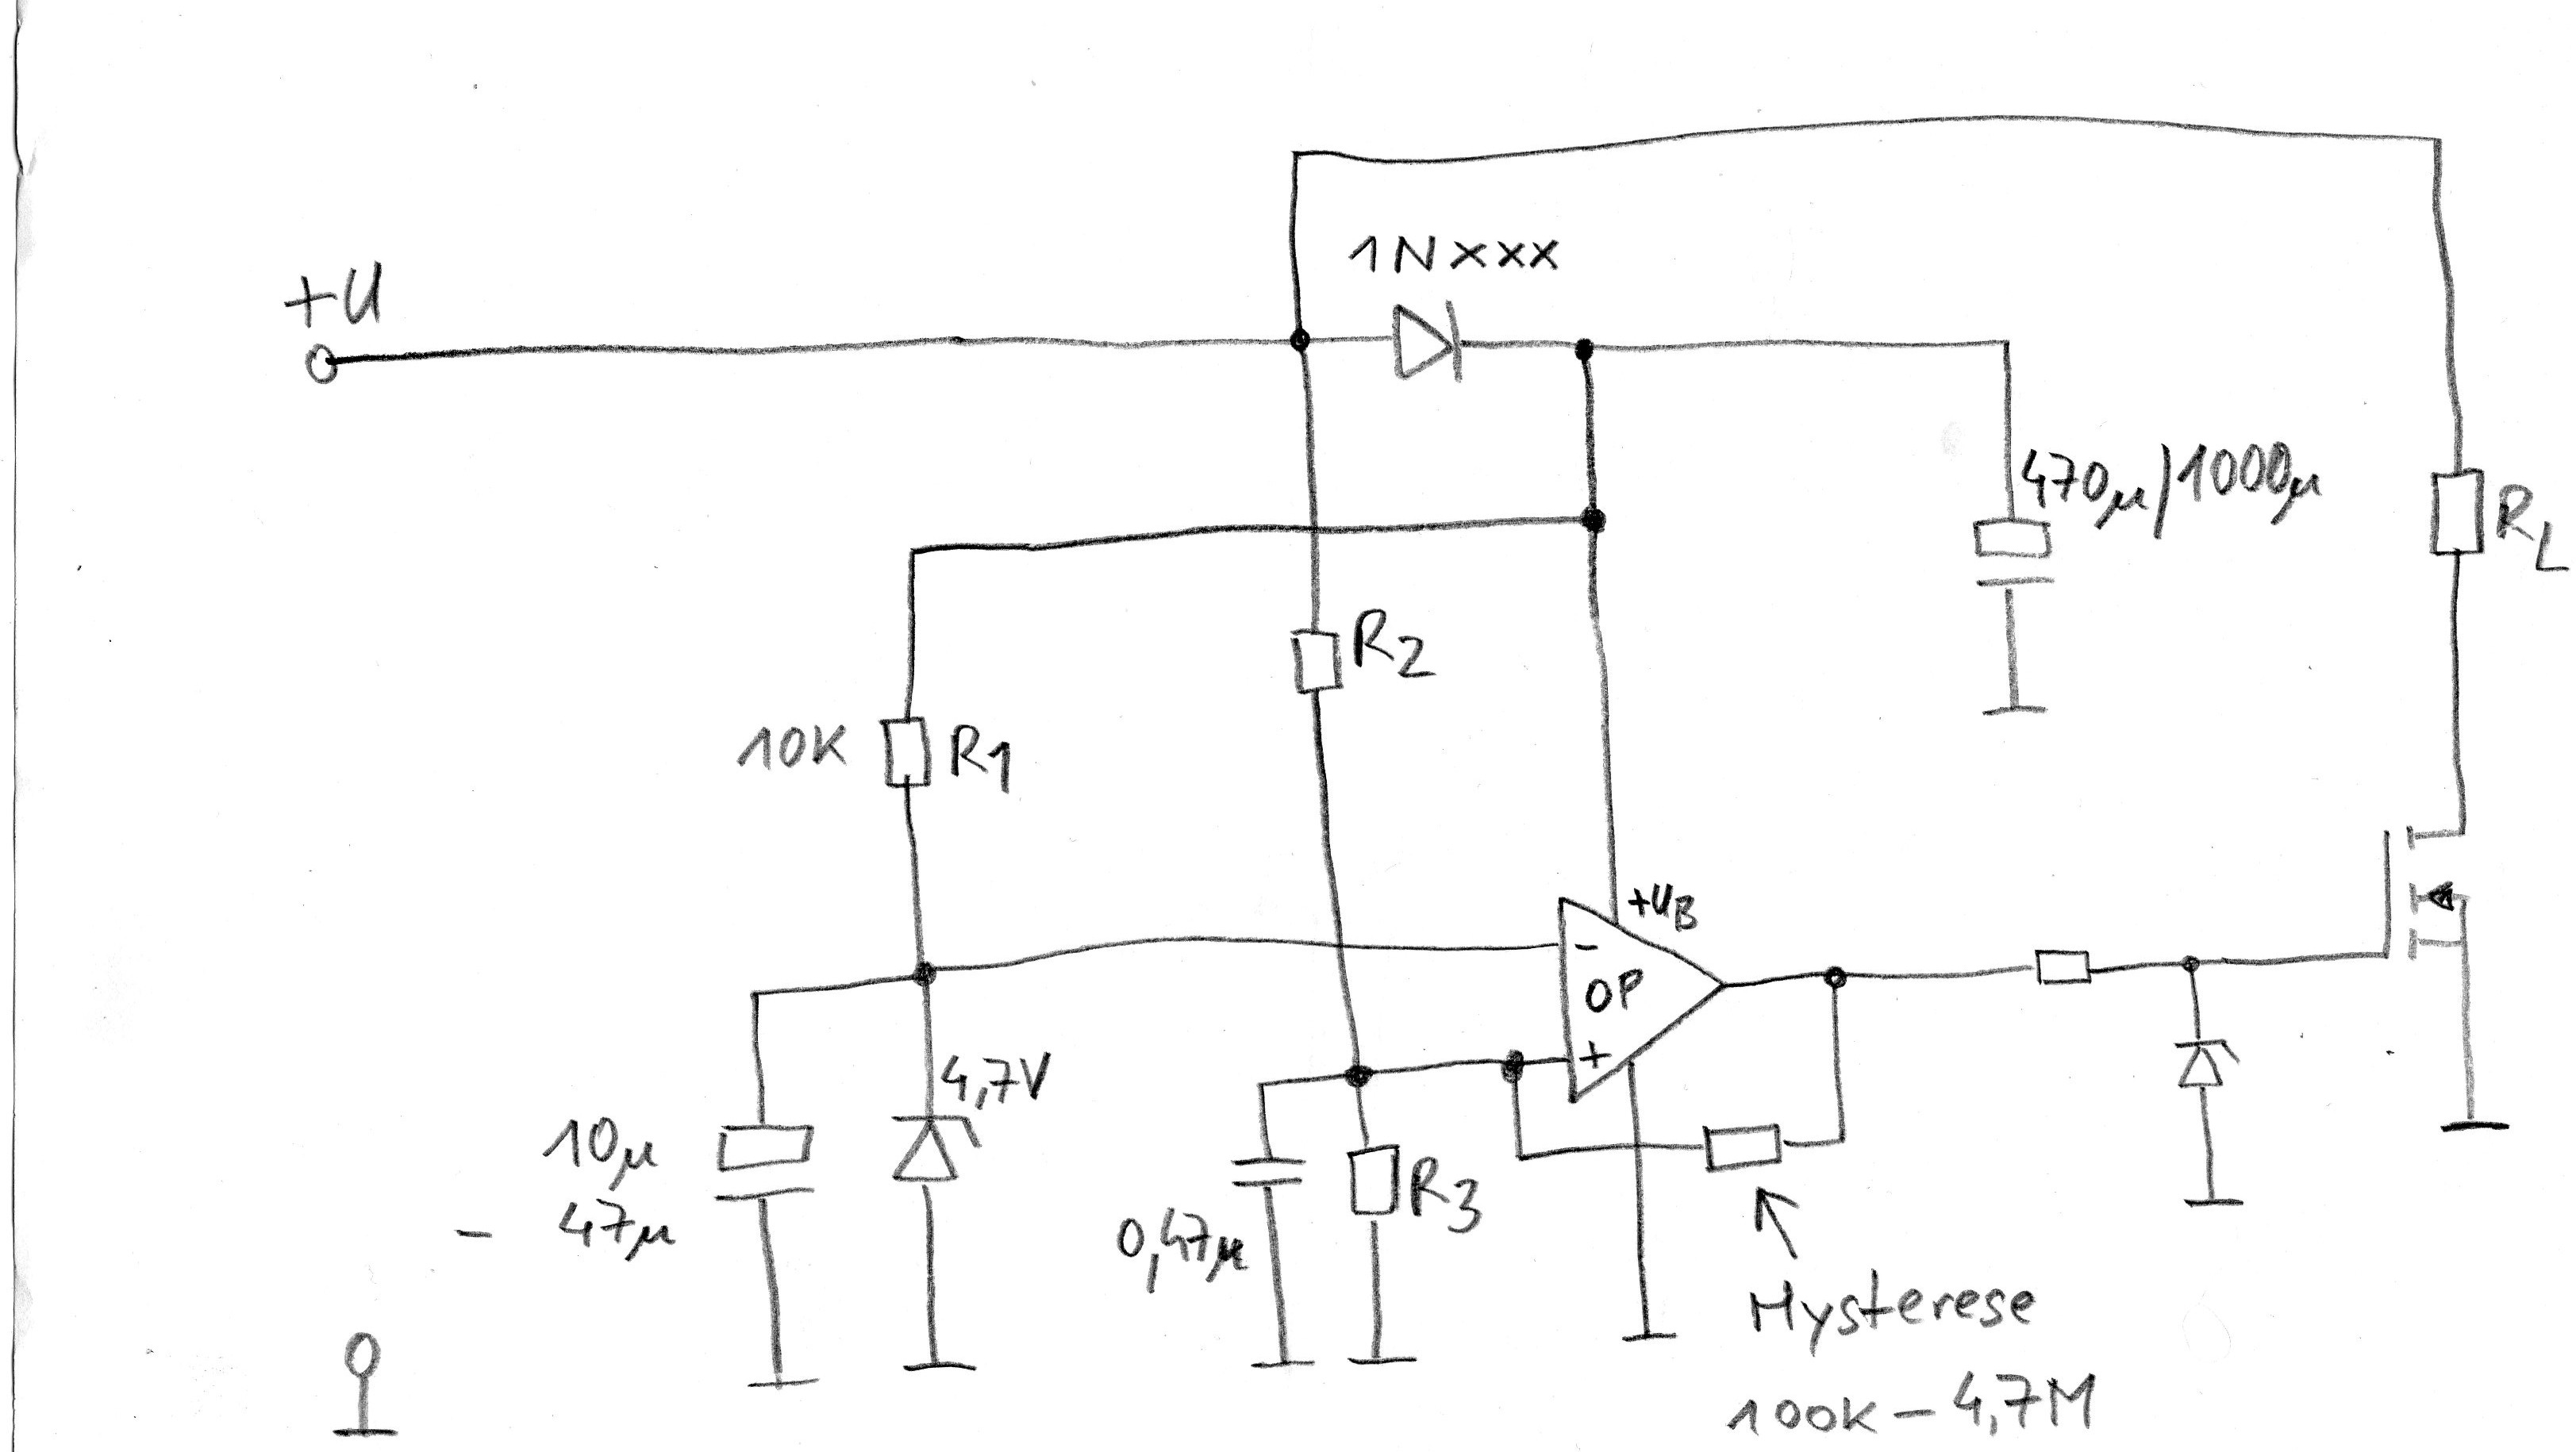 +U
1Nxxx
470µ/1000µ
RL
R2
10K
R1
+UB
-
OP
+
4,7V
10µ
- 47µ
0,47µ
R3
Hysterese
100K - 4,7M